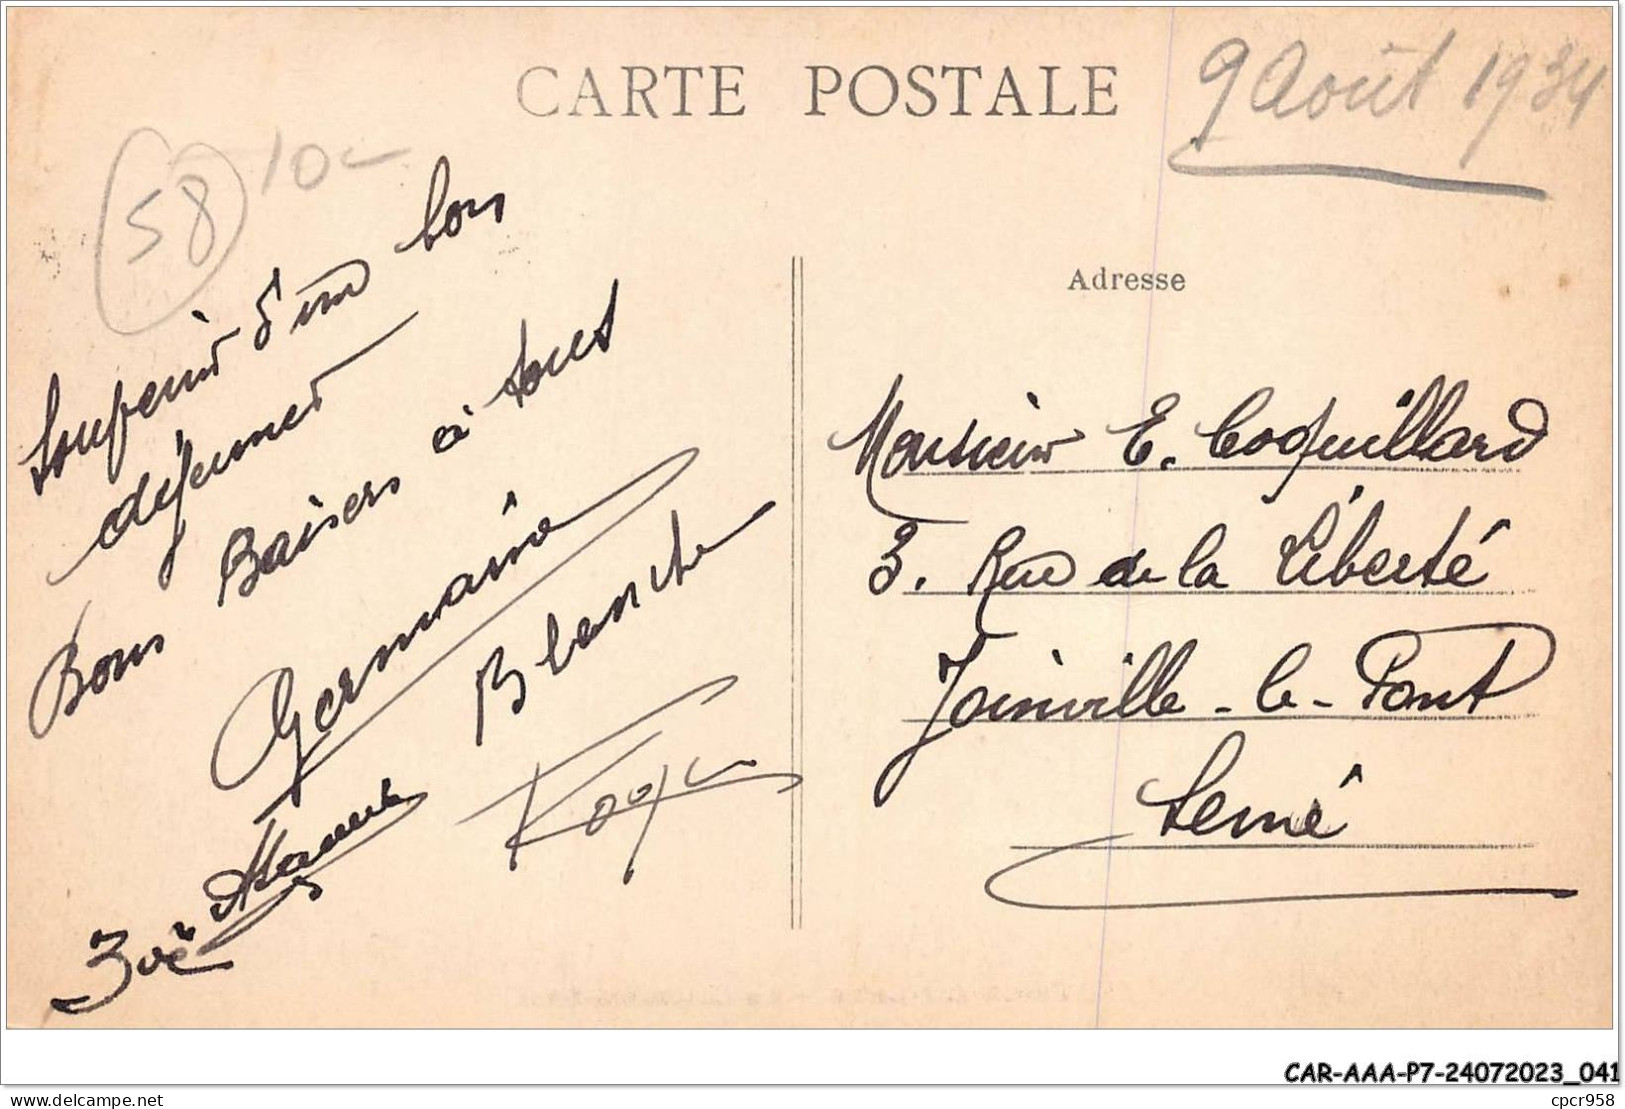 CARTE POSTALE
9 Août 1934
58
10
Souvenir d'un bon
déjeuner
Bons Baisers à tous
Germaine
Blanche
Zoë
Adresse
Monsieur E. Coquillard
3. Rue de la Liberté
Joinville-le-Pont
Seine
CAR-AAA-P7-24072023_041
delcampe.net
cpcr958